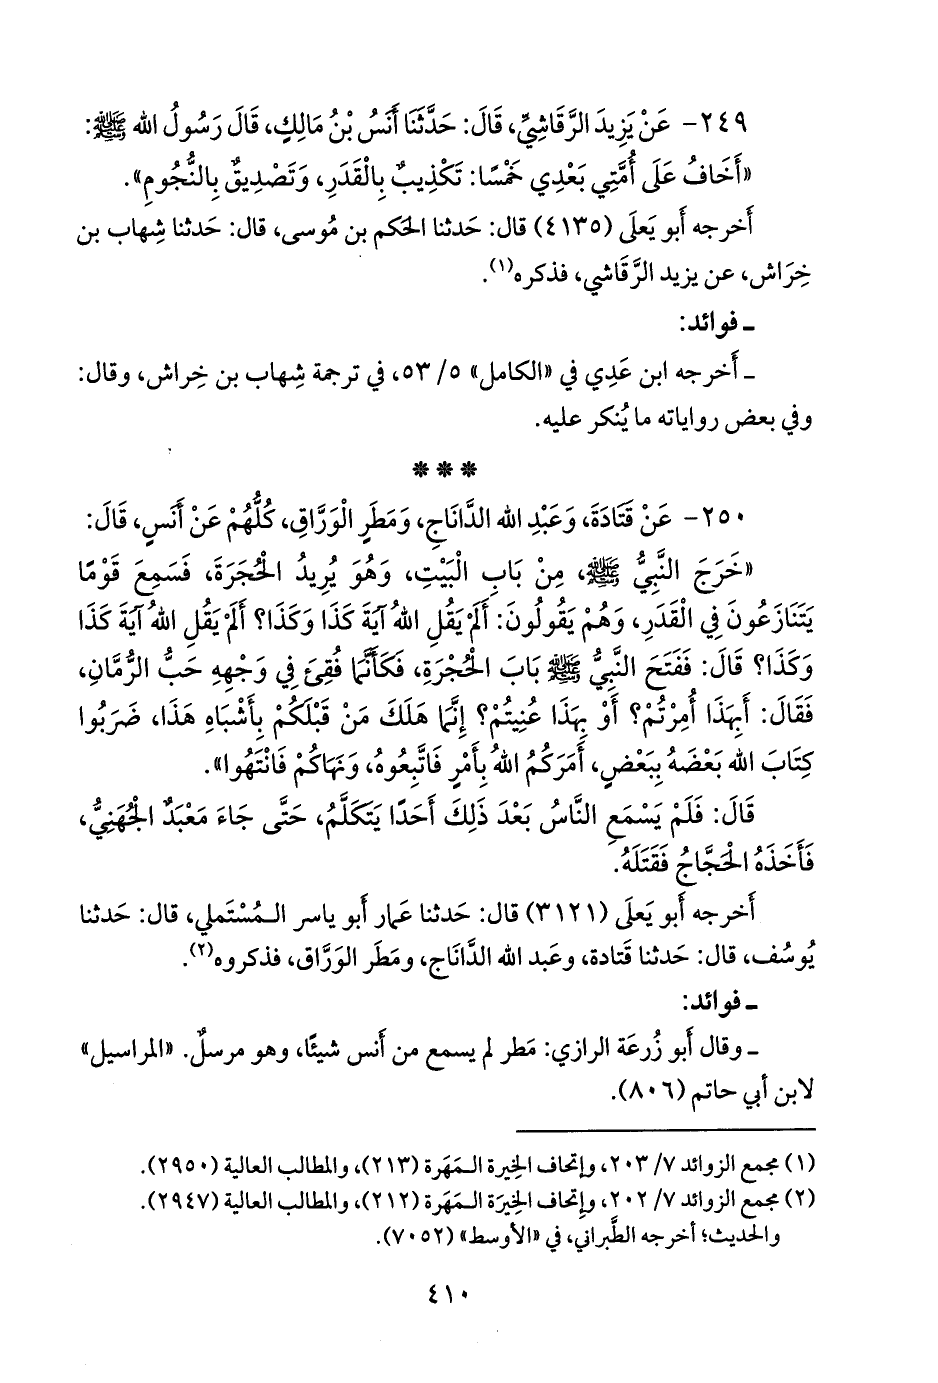 ٢٤٩- عَنْ يَزِيدَ الرَّقَاشِيِّ، قَالَ: حَدَّثَنَا أَنَسُ بْنُ مَالِكٍ، قَالَ رَسُولُ الله ﷺ:
«أَخَافُ عَلَى أُمَّتِي بَعْدِي خَمْسًا: تَكْذِيبٌ بِالْقَدَرِ، وَتَصْدِيقٌ بِالنُّجُومِ».
أَخرجه أبو يَعلَى (٤١٣٥) قال: حَدثنا الحَكم بن مُوسى، قال: حَدثنا شِهاب بن
خِرَاش، عن يزيد الرَّقَاشي، فذكره(١).
ـ فوائد:
ـ أَخرجه ابن عَدِي في «الكامل» ٥/ ٥٣، في ترجمة شِهاب بن خِراش، وقال:
وفي بعض رواياته ما يُنكر عليه.
* * *
٢٥٠- عَنْ قَتَادَةَ، وَعَبْدِ الله الدَّانَاجِ، وَمَطَرٍ الْوَرَّاقِ، كُلُّهُمْ عَنْ أَنَسٍ، قَالَ:
«خَرَجَ النَّبِيُّ ﷺ، مِنْ بَابِ الْبَيْتِ، وَهُوَ يُرِيدُ الْحُجَرَةَ، فَسَمِعَ قَوْمًا
يَتَنَازَعُونَ فِي الْقَدَرِ، وَهُمْ يَقُولُونَ: أَلَمْ يَقُلِ اللهُ آيَةَ كَذَا وَكَذَا؟ أَلَمْ يَقُلِ اللهُ آيَةَ كَذَا
وَكَذَا؟ قَالَ: فَفَتَحَ النَّبِيُّ ﷺ بَابَ الْحُجْرَةِ، فَكَأَنَّمَا فُقِئَ فِي وَجْهِهِ حَبُّ الرُّمَّانِ،
فَقَالَ: أَبِهَذَا أُمِرْتُمْ؟ أَوْ بِهَذَا عُنِيتُمْ؟ إِنَّمَا هَلَكَ مَنْ قَبْلَكُمْ بِأَشْبَاهِ هَذَا، ضَرَبُوا
كِتَابَ الله بَعْضَهُ بِبَعْضٍ، أَمَرَكُمُ اللهُ بِأَمْرٍ فَاتَّبِعُوهُ، وَنَهَاكُمْ فَانْتَهُوا».
قَالَ: فَلَمْ يَسْمَعِ النَّاسُ بَعْدَ ذَلِكَ أَحَدًا يَتَكَلَّمُ، حَتَّى جَاءَ مَعْبَدٌ الْجُهَنِيُّ،
فَأَخَذَهُ الْحَجَّاجُ فَقَتَلَهُ.
أَخرجه أبو يَعلَى (٣١٢١) قال: حَدثنا عَمار أَبو ياسر الـمُسْتَملي، قال: حَدثنا
يُوسُف، قال: حَدثنا قَتادة، وعَبد الله الدَّانَاج، ومَطَر الوَرَّاق، فذكروه(٢).
ـ فوائد:
ـ وقال أَبو زُرعَة الرازي: مَطر لم يسمع من أَنس شيئًا، وهو مرسلٌ. «المراسيل»
لابن أبي حاتم (٨٠٦).
(١) مجمع الزوائد ٧/ ٢٠٣، وإتحاف الخِيرة الـمَهَرة (٢١٣)، والمطالب العالية (٢٩٥٠).
(٢) مجمع الزوائد ٧/ ٢٠٢، وإتحاف الخِيرَة الـمَهَرة (٢١٢)، والمطالب العالية (٢٩٤٧).
والحديث؛ أخرجه الطَّبراني، في «الأوسط» (٧٠٥٢).
٤١٠